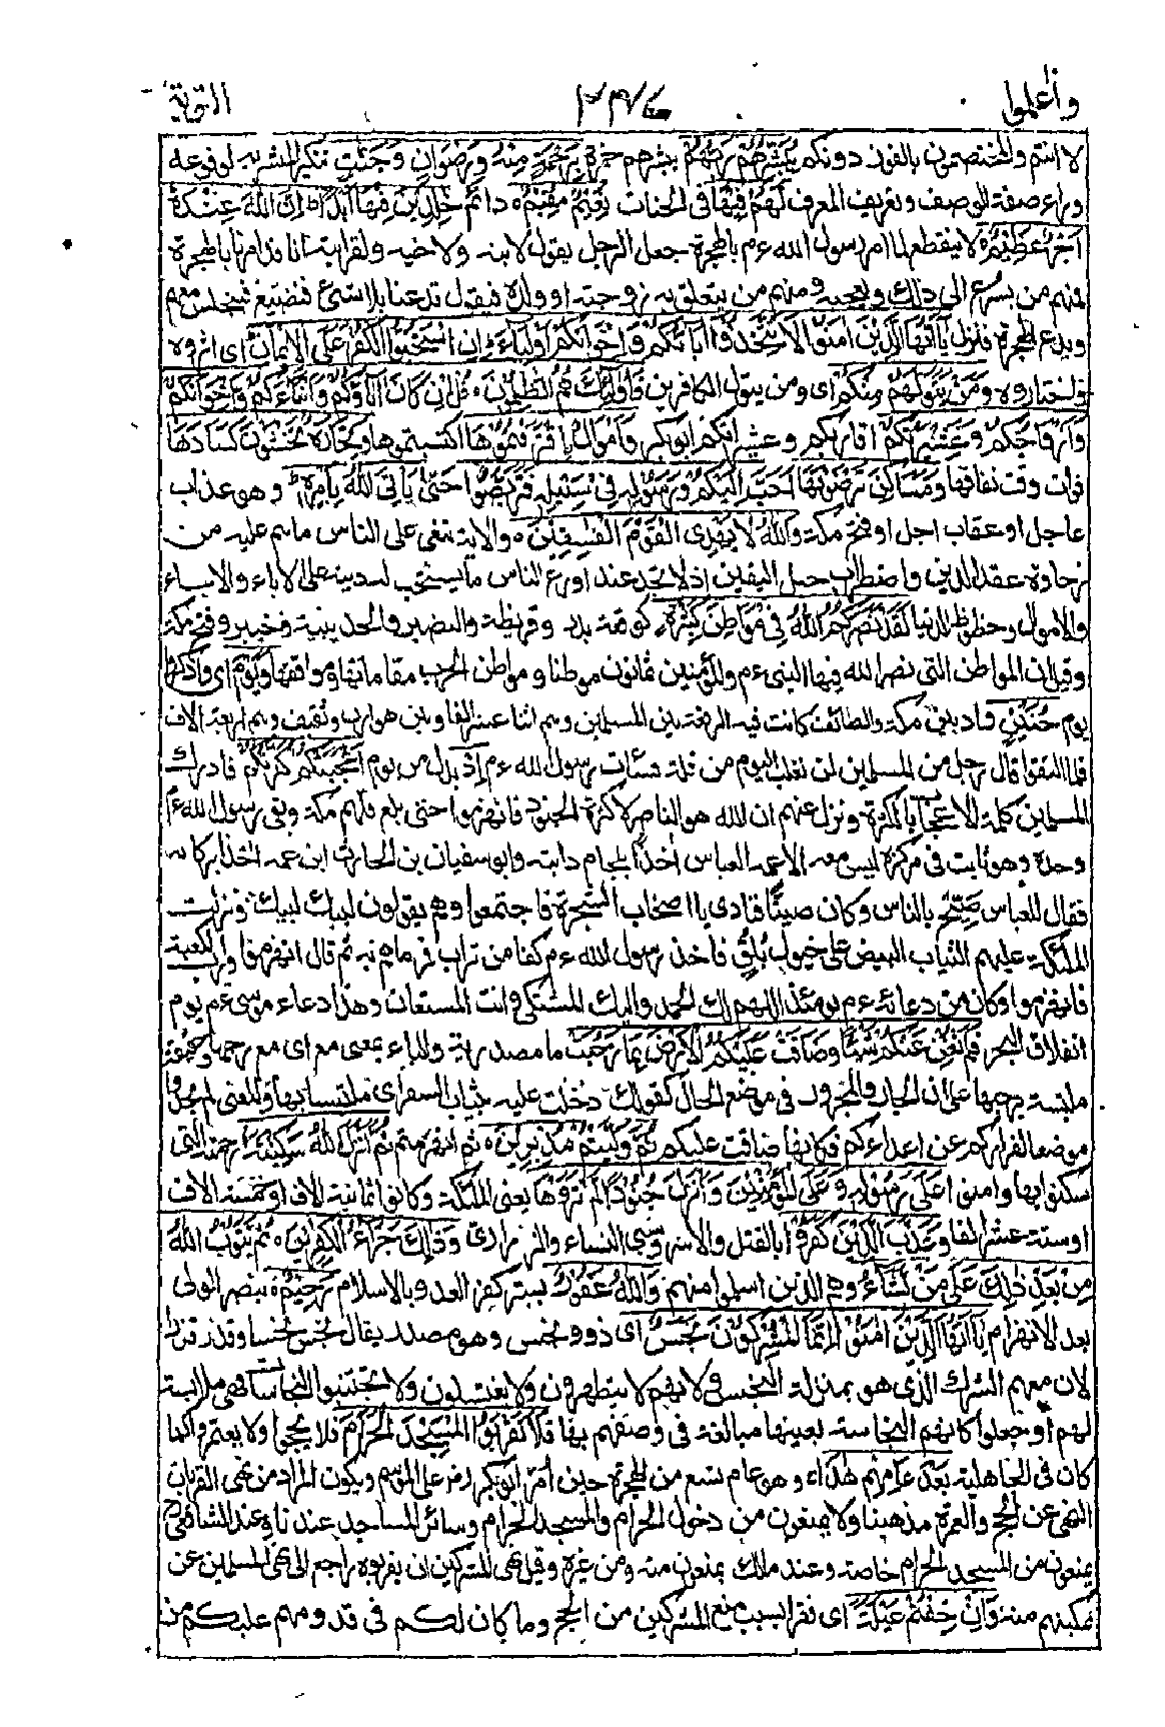 واعلموا ٣٤٧ التوبة
لا انتم والمختصون بالفوز دونكم يُبَشِّرُهُمْ رَبُّهُمْ يبشرهم حمزة بِرَحْمَةٍ مِنْهُ وَرِضْوَانٍ وَجَنّٰتٍ تنكير المبشر به لوقوعه
وراء صفة الواصف وتعريف المعرف لَهُمْ فِيْهَا فى الجنات نَعِيْمٌ مُقِيْمٌ ه دائم خٰلِدِيْنَ فِيْهَا اَبَدًا ط اِنَّ اللهَ عِنْدَهٗ
اَجْرٌ عَظِيْمٌ ه لا ينقطع لما امر رسول الله ءم بالهجرة جعل الرجل يقول لابنه ولاخيه ولقرابته انا قد امرنا بالهجرة
فمنهم من يسرع الى ذلك ويعجبه ومنهم من يتعلق به زوجته او ولده فيقول تدعنا بلا شئ فنضيع فيجلس معهم
ويدع الهجرة فنزل يٰۤاَيُّهَا الَّذِيْنَ اٰمَنُوْا لَا تَتَّخِذُوْۤا اٰبَآءَكُمْ وَاِخْوَانَكُمْ اَوْلِيَآءَ اِنِ اسْتَحَبُّوا الْكُفْرَ عَلَى الْاِيْمَانِ اى اثروه
واختاروه وَمَنْ يَّتَوَلَّهُمْ مِنْكُمْ اى ومن يتول الكافرين فَاُولٰٓئِكَ هُمُ الظّٰلِمُوْنَ ه قُلْ اِنْ كَانَ اٰبَآؤُكُمْ وَاَبْنَآؤُكُمْ وَاِخْوَانُكُمْ
وَاَزْوَاجُكُمْ وَعَشِيْرَتُكُمْ اقاربكم وعشيراتكم ابو بكر وَاَمْوَالُ اقْتَرَفْتُمُوْهَا اكتسبتموها وَتِجَارَةٌ تَخْشَوْنَ كَسَادَهَا
فوات وقت نفاقها وَمَسَاكِنُ تَرْضَوْنَهَا اَحَبَّ اِلَيْكُمْ مِنَ اللهِ وَرَسُوْلِهٖ فِيْ سَبِيْلِهٖ فَتَرَبَّصُوْا حَتّٰى يَاْتِيَ اللهُ بِاَمْرِهٖ ط وهو عذاب
عاجل او عقاب اجل او فتح مكة وَاللهُ لَا يَهْدِى الْقَوْمَ الْفٰسِقِيْنَ ه والاية تنعى على الناس ما هم عليه من
رخاوة عقد الدين واضطراب حبل اليقين اذ لا تجد عند اورع الناس ما يستحب لدينه على الاباء والابناء
والاموال وحظوظ الدنيا لَقَدْ نَصَرَكُمُ اللهُ فِيْ مَوَاطِنَ كَثِيْرَةٍ كوقعة بدر وقريظة والنضير والحديبية وخيبر وفتح مكة
وقيل ان المواطن التى نصر الله فيها النبى ءم والمؤمنين ثمانون موطنا ومواطن الحرب مقاماتها ومواقفها وَيَوْمَ اى واذكروا
يوم حُنَيْنٍ واد بين مكة والطائف كانت فيه الوقعة بين المسلمين وهم اثنا عشر الفا وبين هوازن وثقيف وهم اربعة الاف
فلما التقوا قال رجل من المسلمين لن نغلب اليوم من قلة فساءت رسول الله ءم اِذْ بدل من يوم اَعْجَبَتْكُمْ كَثْرَتُكُمْ فادرك
المسلمين كلمة الاعجاب بالكثرة وزل عنهم ان الله هو الناصر لا كثرة الجنود فانهزموا حتى بلغ فلهم مكة وبقى رسول الله ءم
وحده وهو ثابت فى مركزه ليس معه الا عمه العباس اخذا بلجام دابته وابو سفيان بن الحارث ابن عمه اخذا بركابه
فقال للعباس صح بالناس وكان صيتا فنادى يا اصحاب الشجرة فاجتمعوا وهم يقولون لبيك لبيك ونزلت
الملئكة عليهم الثياب البيض على خيول بلق فاخذ رسول الله ءم كفا من تراب فرماهم به ثم قال انهزموا ورب الكعبة
فانهزموا وكان من دعائه ءم يومئذ اللهم لك الحمد واليك المشتكى وانت المستعان وهذا دعاء موسى ءم يوم
انفلاق البحر فَلَمْ تُغْنِ عَنْكُمْ شَيْئًا وَضَاقَتْ عَلَيْكُمُ الْاَرْضُ بِمَا رَحُبَتْ ما مصدرية والباء بمعنى مع اى مع رحبها وحقيقته
ملتبسة برحبها على ان الجار والمجرور فى موضع الحال كقولك دخلت عليه بثياب السفر اى ملتبسا بها والمعنى لم تجدوا
موضعا لفراركم عن اعداءكم فكانها ضاقت عليكم ثُمَّ وَلَّيْتُمْ مُدْبِرِيْنَ ه ثم انهزمتم ثُمَّ اَنْزَلَ اللهُ سَكِيْنَتَهٗ رحمته التى
سكنوا بها وامنوا عَلٰى رَسُوْلِهٖ وَعَلَى الْمُؤْمِنِيْنَ وَاَنْزَلَ جُنُوْدًا لَمْ تَرَوْهَا يعنى الملئكة وكانوا ثمانية الاف او خمسة الاف
او ستة عشر الفا وَعَذَّبَ الَّذِيْنَ كَفَرُوْا بالقتل والاسر وسبى النساء والذرارى وَذٰلِكَ جَزَآءُ الْكٰفِرِيْنَ ه ثُمَّ يَتُوْبُ اللهُ
مِنْ بَعْدِ ذٰلِكَ عَلٰى مَنْ يَّشَآءُ وهم الذين اسلموا منهم وَاللهُ غَفُوْرٌ بستر كفر العدو بالاسلام رَحِيْمٌ ه بنصر الولى
بعد الانهزام يٰۤاَيُّهَا الَّذِيْنَ اٰمَنُوْۤا اِنَّمَا الْمُشْرِكُوْنَ نَجَسٌ اى ذوو نجس وهو مصدر يقال نجس نجسا وقذر قذرا
لان معهم الشرك الذى هو بمنزلة النجس ولانهم لا يتطهرون ولا يغتسلون ولا يجتنبون النجاسات فهى ملابسة
لهم او جعلوا كانهم النجاسة بعينها مبالغة فى وصفهم بها فَلَا يَقْرَبُوا الْمَسْجِدَ الْحَرَامَ فلا يحجوا ولا يعتمروا كما
كان فى الجاهلية بَعْدَ عَامِهِمْ هٰذَا وهو عام تسع من الهجرة حين امر ابو بكر رض على الموسم ويكون المراد من نهى القربان
النهى عن الحج والعمرة مذهبنا ولا يمنعون من دخول الحرام والمسجد الحرام وسائر المساجد عندنا وعند الشافعى رح
يمنعون من المسجد الحرام خاصة وعند مالك يمنعون منه ومن غيره وقيل نهى المشركين ان يقربوه راجع الى نهى المسلمين عن
تمكينهم منه وَاِنْ خِفْتُمْ عَيْلَةً اى فقرا بسبب منع المشركين من الحج وما كان لكم فى قدومهم عليكم من